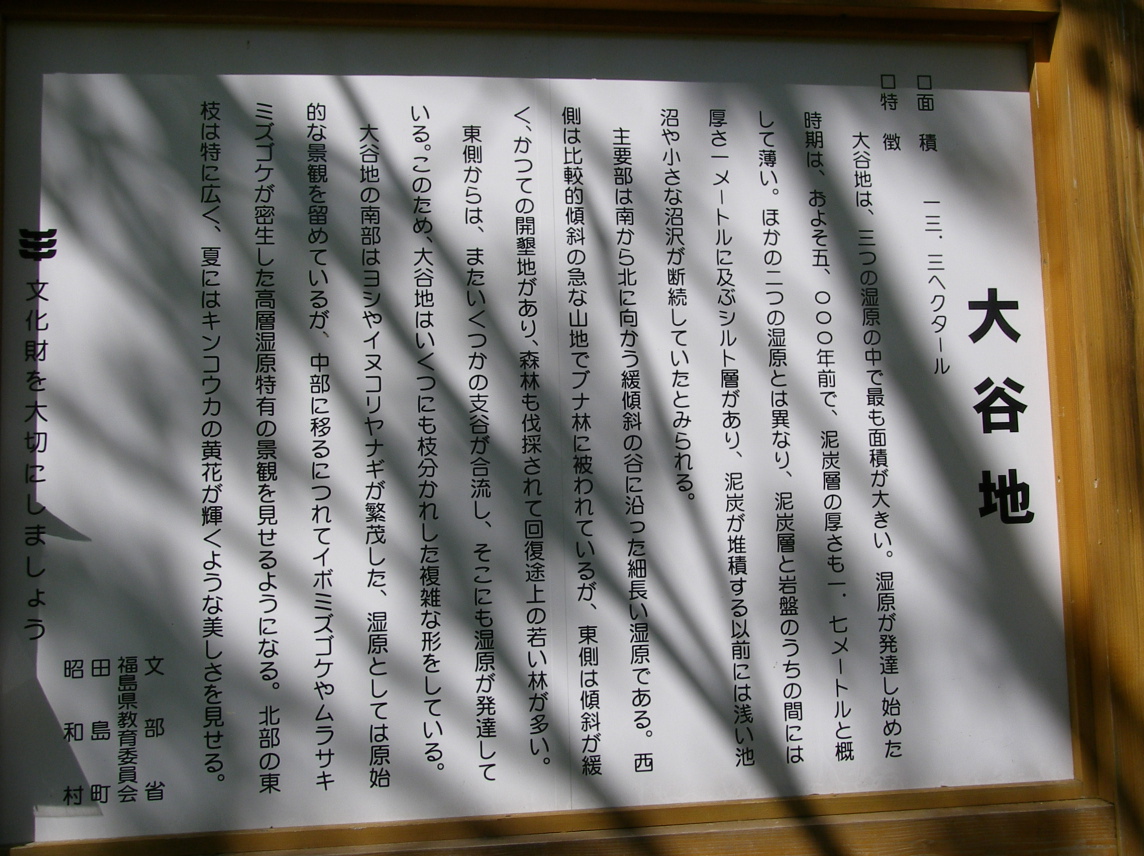 大谷地
□面　積　一三．三ヘクタール
□特　徴
大谷地は、三つの湿原の中で最も面積が大きい。湿原が発達し始めた
時期は、およそ五、〇〇〇年前で、泥炭層の厚さも一．七メートルと概
して薄い。ほかの二つの湿原とは異なり、泥炭層と岩盤のうちの間には
厚さ一メートルに及ぶシルト層があり、泥炭が堆積する以前には浅い池
沼や小さな沼沢が断続していたとみられる。
主要部は南から北に向かう緩傾斜の谷に沿った細長い湿原である。西
側は比較的傾斜の急な山地でブナ林に被われているが、東側は傾斜が緩
く、かつての開墾地があり、森林も伐採されて回復途上の若い林が多い。
東側からは、またいくつかの支谷が合流し、そこにも湿原が発達して
いる。このため、大谷地はいくつにも枝分かれした複雑な形をしている。
大谷地の南部はヨシやイヌコリヤナギが繁茂した、湿原としては原始
的な景観を留めているが、中部に移るにつれてイボミズゴケやムラサキ
ミズゴケが密生した高層湿原特有の景観を見せるようになる。北部の東
枝は特に広く、夏にはキンコウカの黄花が輝くような美しさを見せる。
文部省
福島県教育委員会
田島町
昭和村
文化財を大切にしましょう